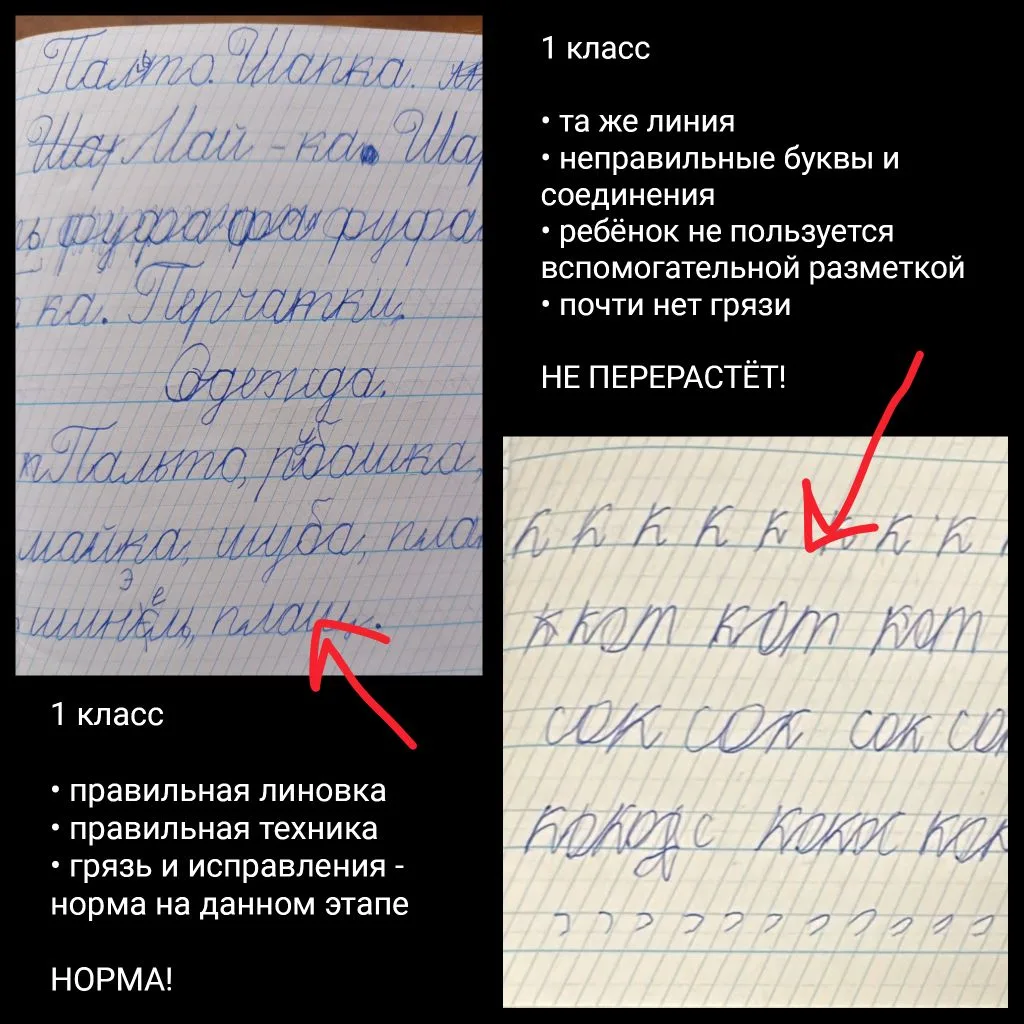 Пальто. Шапка.
Шар Май - ка. Ша
фуфа фа фуфа
ка. Перчатки.
Одежда.
Пальто, рубашка,
майка, шуба, пла
э е
шинель, плащ.
1 класс
• правильная линовка
• правильная техника
• грязь и исправления -
норма на данном этапе
НОРМА!
1 класс
• та же линия
• неправильные буквы и
соединения
• ребёнок не пользуется
вспомогательной разметкой
• почти нет грязи
НЕ ПЕРЕРАСТЁТ!
к к к к к к к к
к кот кот кот
сок сок сок со
кокос кокос кок